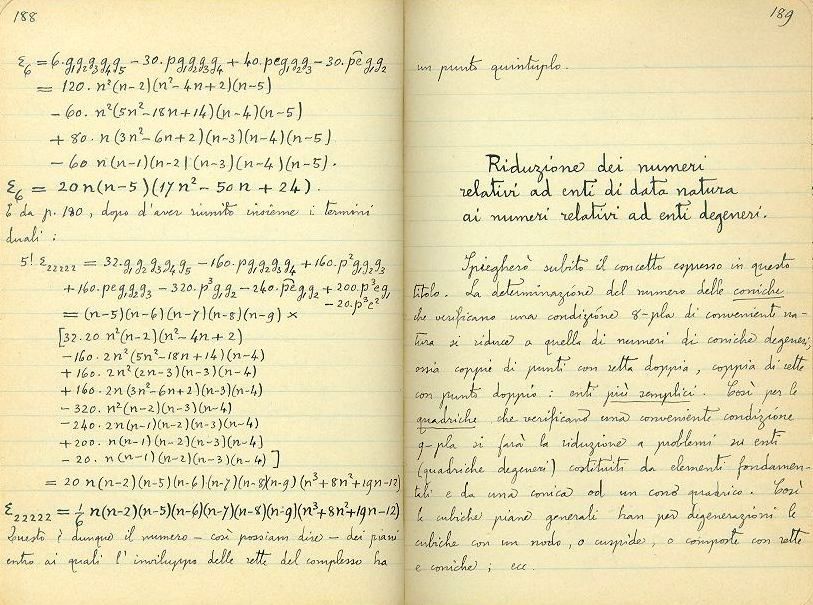 188
ε₆ = 6.g₁g₂g₃g₄g₅ − 30.pg₁g₂g₃g₄ + 40.peg₁g₂g₃ − 30.p̂eg₁g₂
= 120. n²(n−2)(n²−4n+2)(n−5)
− 60. n²(5n²−18n+14)(n−4)(n−5)
+ 80. n(3n²−6n+2)(n−3)(n−4)(n−5)
− 60 n(n−1)(n−2)(n−3)(n−4)(n−5).
ε₆ = 20n(n−5)(17n²−50n+24).
E da p. 180, dopo d'aver riunito insieme i termini
duali :
5! ε₂₂₂₂₂ = 32.g₁g₂g₃g₄g₅ −160.pg₁g₂g₃g₄ +160.p²g₁g₂g₃
+160.peg₁g₂g₃ −320.p³g₁g₂ −240.p̂eg₁g₂ +200.p³eg₁
−20.p³e²
= (n−5)(n−6)(n−7)(n−8)(n−9) ×
[32.20 n²(n−2)(n²−4n+2)
−160.2n²(5n²−18n+14)(n−4)
+160.2n²(2n−3)(n−3)(n−4)
+160.2n(3n²−6n+2)(n−3)(n−4)
−320. n²(n−2)(n−3)(n−4)
−240.2n(n−1)(n−2)(n−3)(n−4)
+200. n(n−1)(n−2)(n−3)(n−4)
− 20. n(n−1)(n−2)(n−3)(n−4)]
= 20 n(n−2)(n−5)(n−6)(n−7)(n−8)(n−9)(n³+8n²+19n−12)
ε₂₂₂₂₂ = 1/6 n(n−2)(n−5)(n−6)(n−7)(n−8)(n−9)(n³+8n²+19n−12)
Questo è dunque il numero – così possiam dire – dei piani
entro ai quali l'inviluppo delle rette del complesso ha
189
un punto quintuplo.
Riduzione dei numeri
relativi ad enti di data natura
ai numeri relativi ad enti degeneri.
Spiegherò subito il concetto espresso in questo
titolo. La determinazione del numero delle coniche
che verificano una condizione 8-pla di conveniente na-
tura si riduce a quella di numeri di coniche degeneri,
ossia coppie di punti con retta doppia, coppia di rette
con punto doppio : enti più semplici. Così per le
quadriche che verificano una conveniente condizione
9-pla si farà la riduzione a problemi su enti
(quadriche degeneri) costituiti da elementi fondamen-
tali e da una conica od un cono quadrico. Così
le cubiche piane generali han per degenerazioni le
cubiche con un nodo, o cuspide, o composte con rette
e coniche ; ecc.